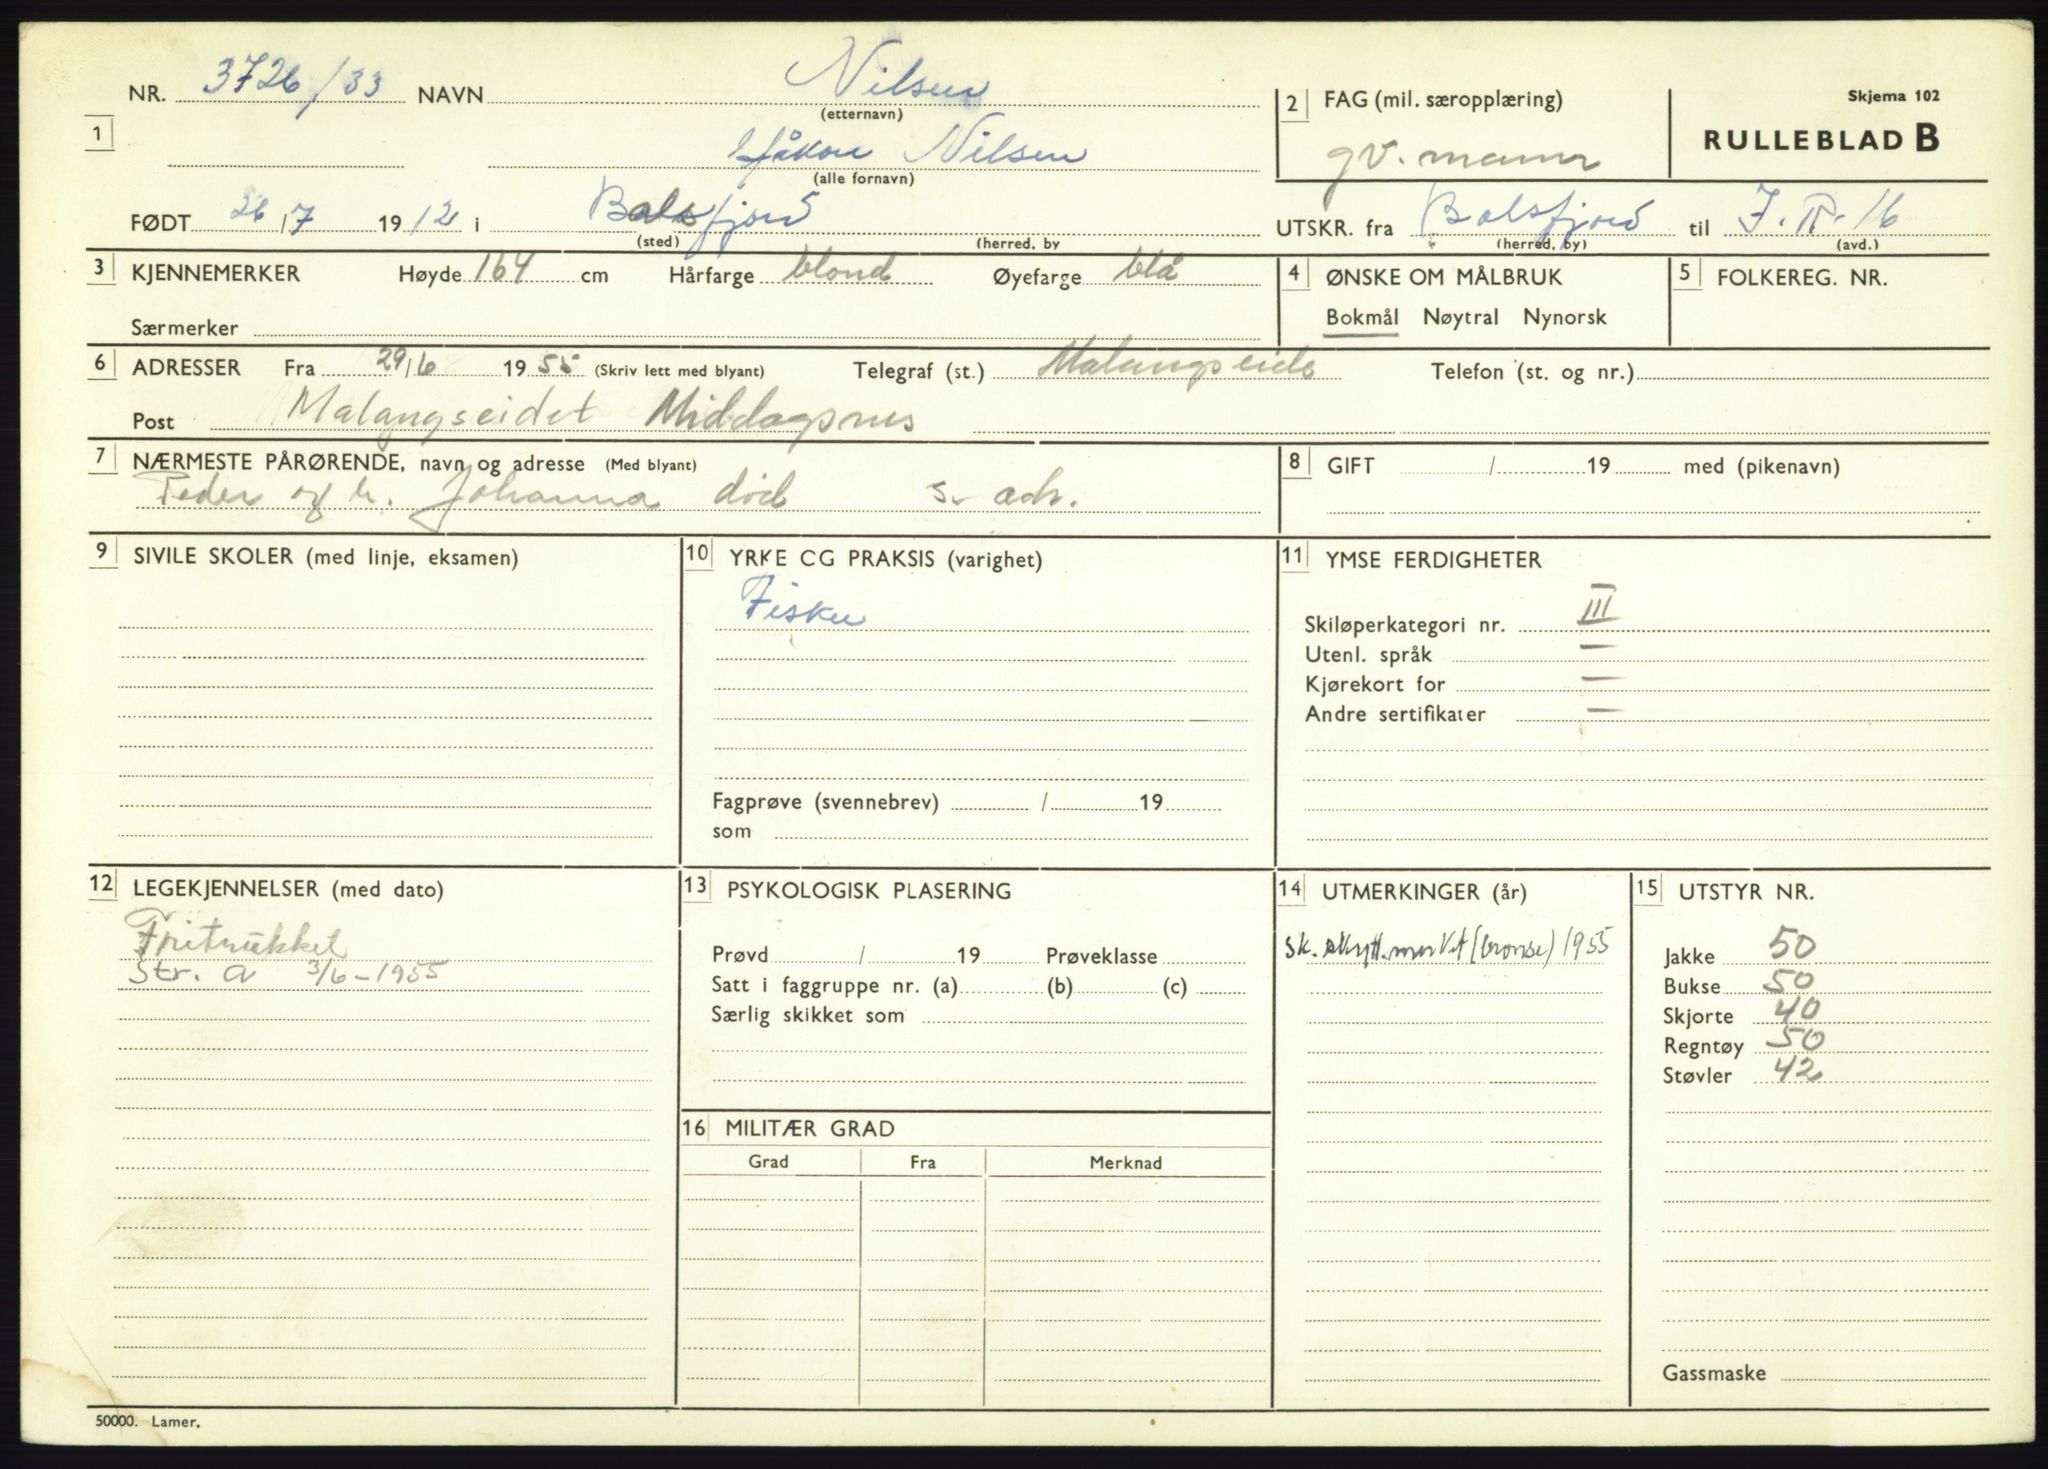 NR. 3726/33 NAVN Nilsen
(etternavn)
1 Håkon Nilsen
(alle fornavn)
FØDT 26/7 1912 i Balsfjord
(sted) (herred, by
2 FAG (mil. særopplæring)
gv. mann
Skjema 102
RULLEBLAD B
UTSKR. fra Balsfjord til I.R. 16
(herred, by) (avd.)
3 KJENNEMERKER Høyde 164 cm Hårfarge blond Øyefarge blå
Særmerker
4 ØNSKE OM MÅLBRUK
Bokmål Nøytral Nynorsk
5 FOLKEREG. NR.
6 ADRESSER Fra 29/6 1955 (Skriv lett med blyant) Telegraf (st.) Malangseide Telefon (st. og nr.)
Post Malangseidet Middagsnes
7 NÆRMESTE PÅRØRENDE, navn og adresse (Med blyant)
Peder og h. Johanna død s. adr.
8 GIFT / 19 med (pikenavn)
9 SIVILE SKOLER (med linje, eksamen)
10 YRKE CG PRAKSIS (varighet)
Fisker
Fagprøve (svennebrev) / 19
som
11 YMSE FERDIGHETER
Skiløperkategori nr. III
Utenl. språk —
Kjørekort for —
Andre sertifikater —
12 LEGEKJENNELSER (med dato)
Fritrukket
Str. a 3/6-1955
13 PSYKOLOGISK PLASERING
Prøvd / 19 Prøveklasse
Satt i faggruppe nr. (a) (b) (c)
Særlig skikket som
16 MILITÆR GRAD
Grad Fra Merknad
14 UTMERKINGER (år)
sk. skytt.merket (bronse) 1955
15 UTSTYR NR.
Jakke 50
Bukse 50
Skjorte 40
Regntøy 50
Støvler 42
Gassmaske
50000. Lamer.